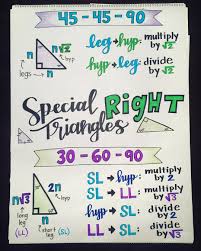 45 - 45 - 90
n
n√2
hyp
n
legs
leg → hyp: multiply by √2
hyp → leg: divide by √2
Special RIGHT
Triangles
30 - 60 - 90
n√3
2n
hyp
long leg (LL)
n
short leg (SL)
SL → hyp: multiply by 2
SL → LL: multiply by √3
hyp → SL: divide by 2
LL → SL: divide by √3